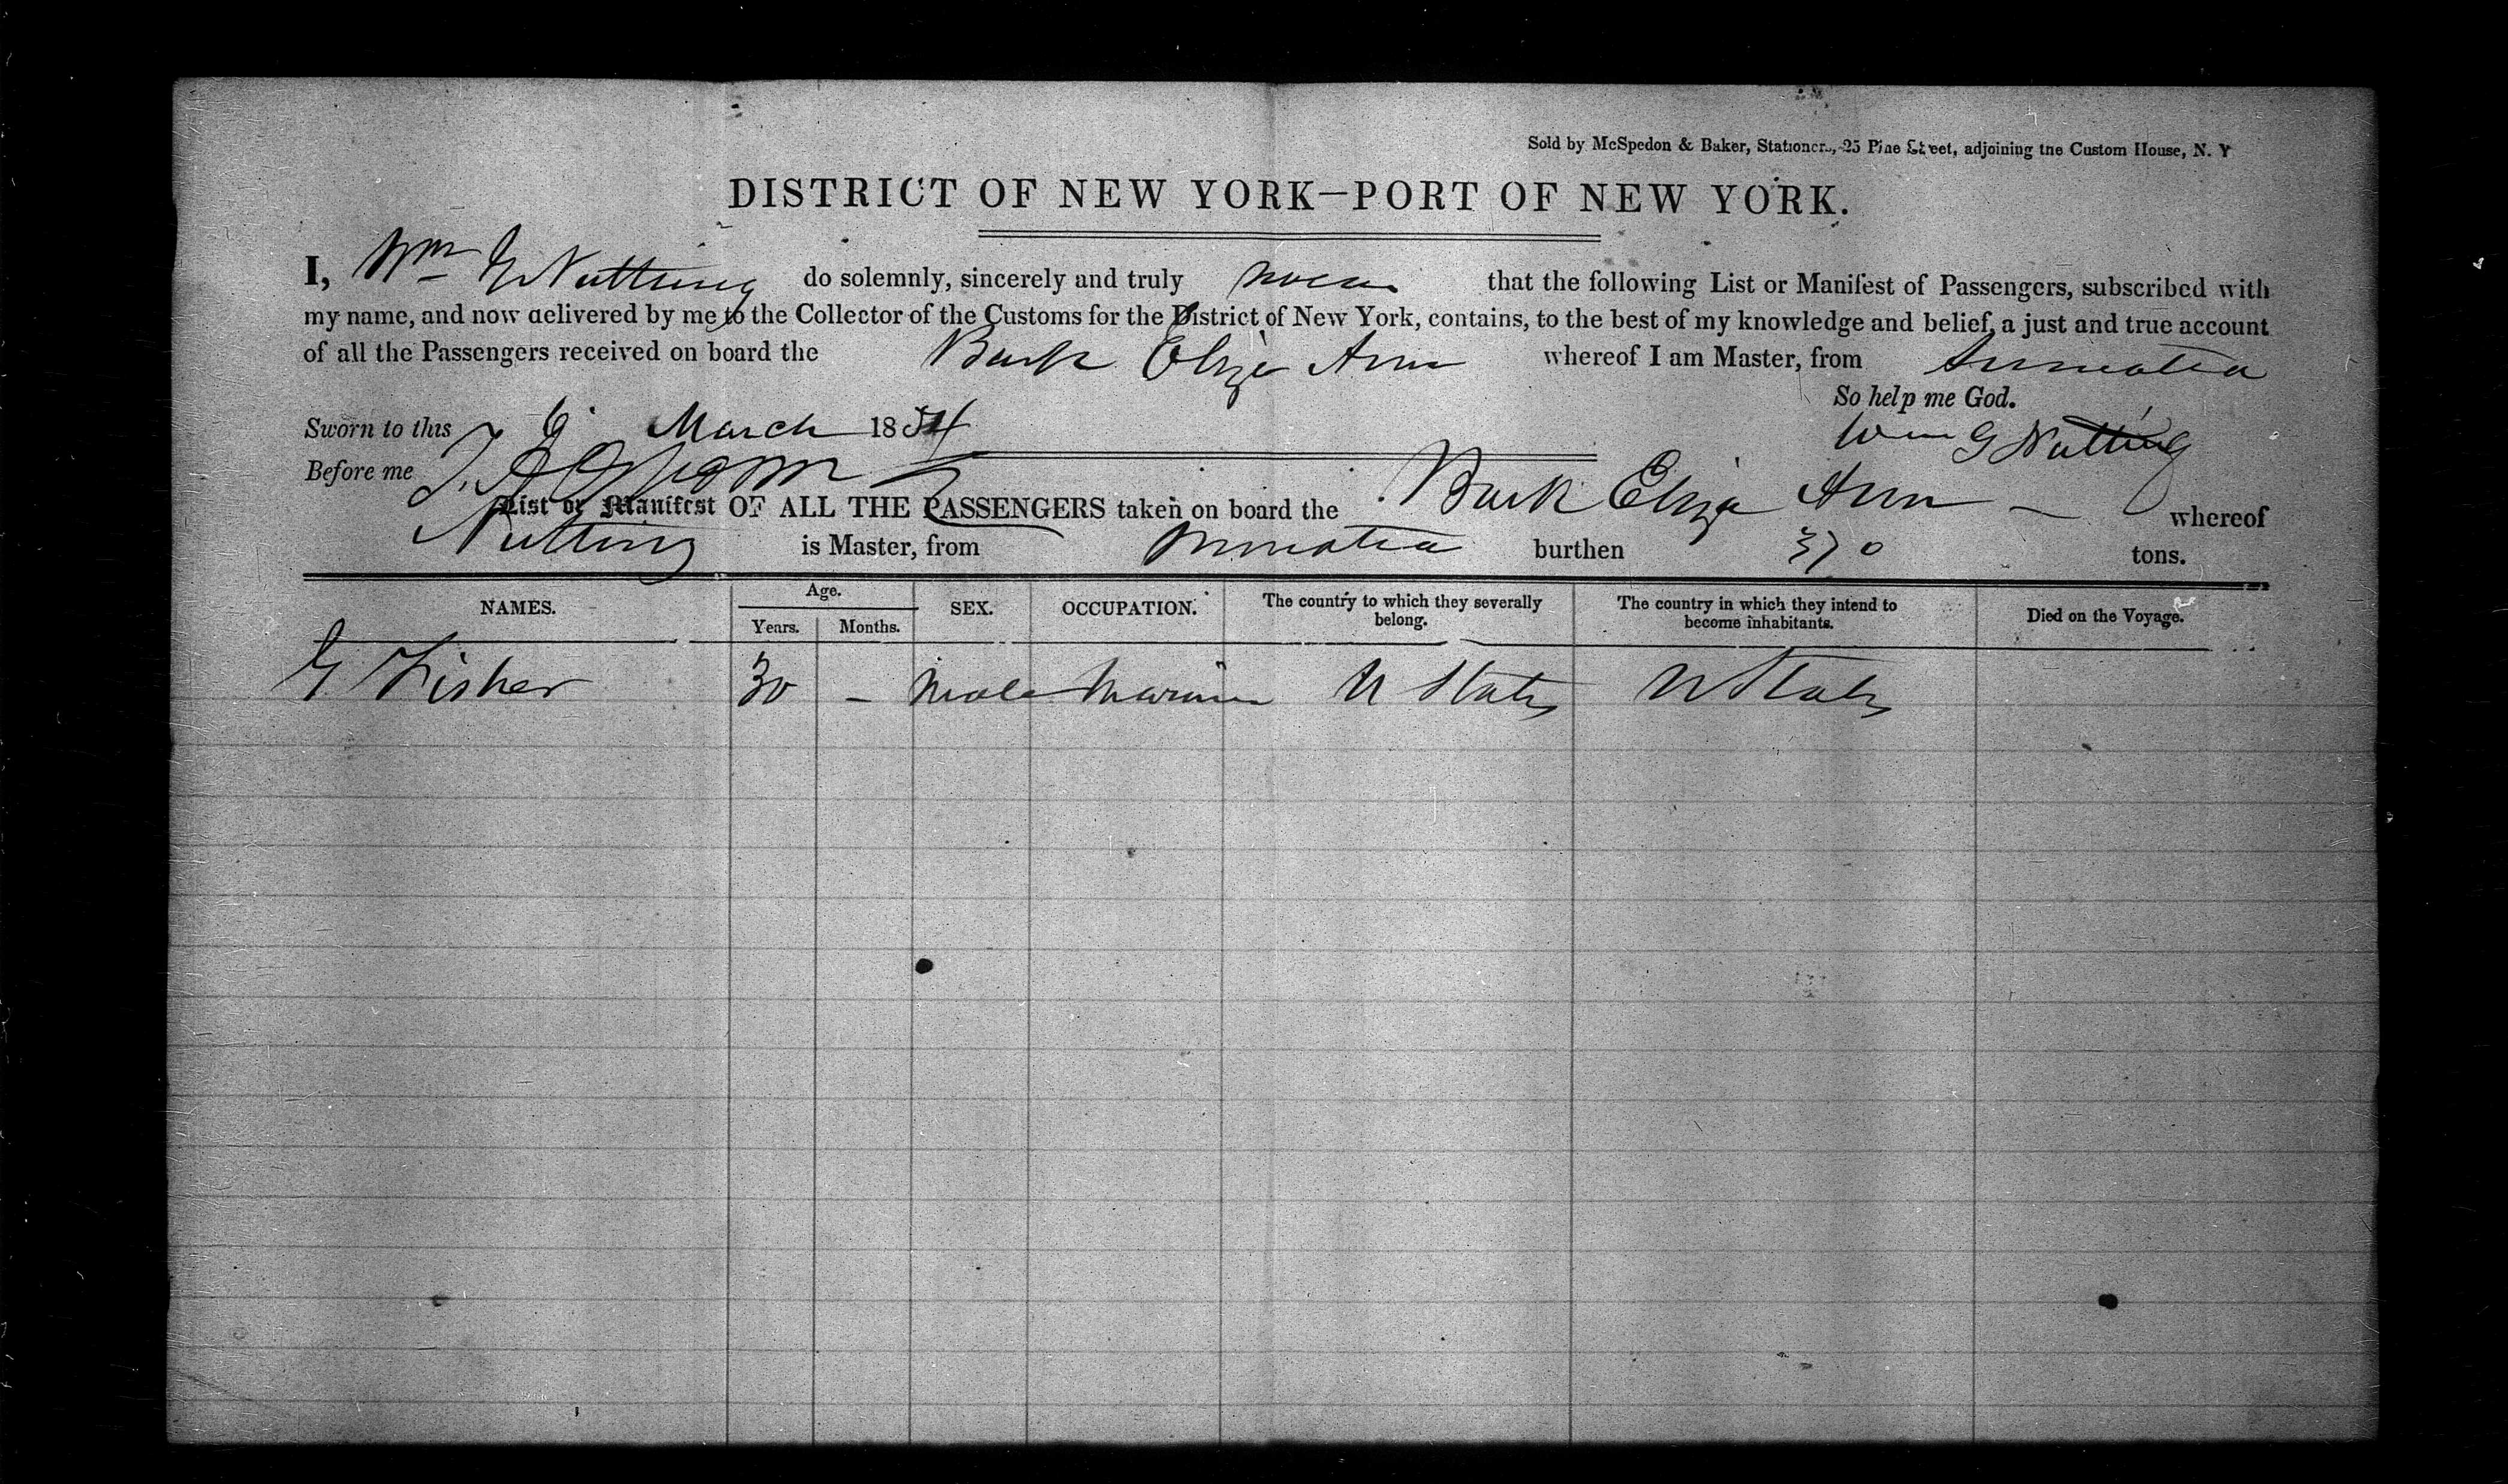 Sold by McSpedon & Baker, Stationers, 25 Pine Street, adjoining the Custom House, N. Y
DISTRICT OF NEW YORK—PORT OF NEW YORK.
I, Wm G Nutting do solemnly, sincerely and truly swear that the following List or Manifest of Passengers, subscribed with
my name, and now delivered by me to the Collector of the Customs for the District of New York, contains, to the best of my knowledge and belief, a just and true account
of all the Passengers received on board the Bark Eliza Ann whereof I am Master, from Sumatra
So help me God.
Sworn to this 6 March 1854 Wm G Nutting
Before me
List or Manifest OF ALL THE PASSENGERS taken on board the Bark Eliza Ann — whereof
Nutting is Master, from Sumatra burthen 370 tons.
NAMES. Age. Years. Months. SEX. OCCUPATION. The country to which they severally belong. The country in which they intend to become inhabitants. Died on the Voyage.
G Fisher 30 – Male Mariner U States U States